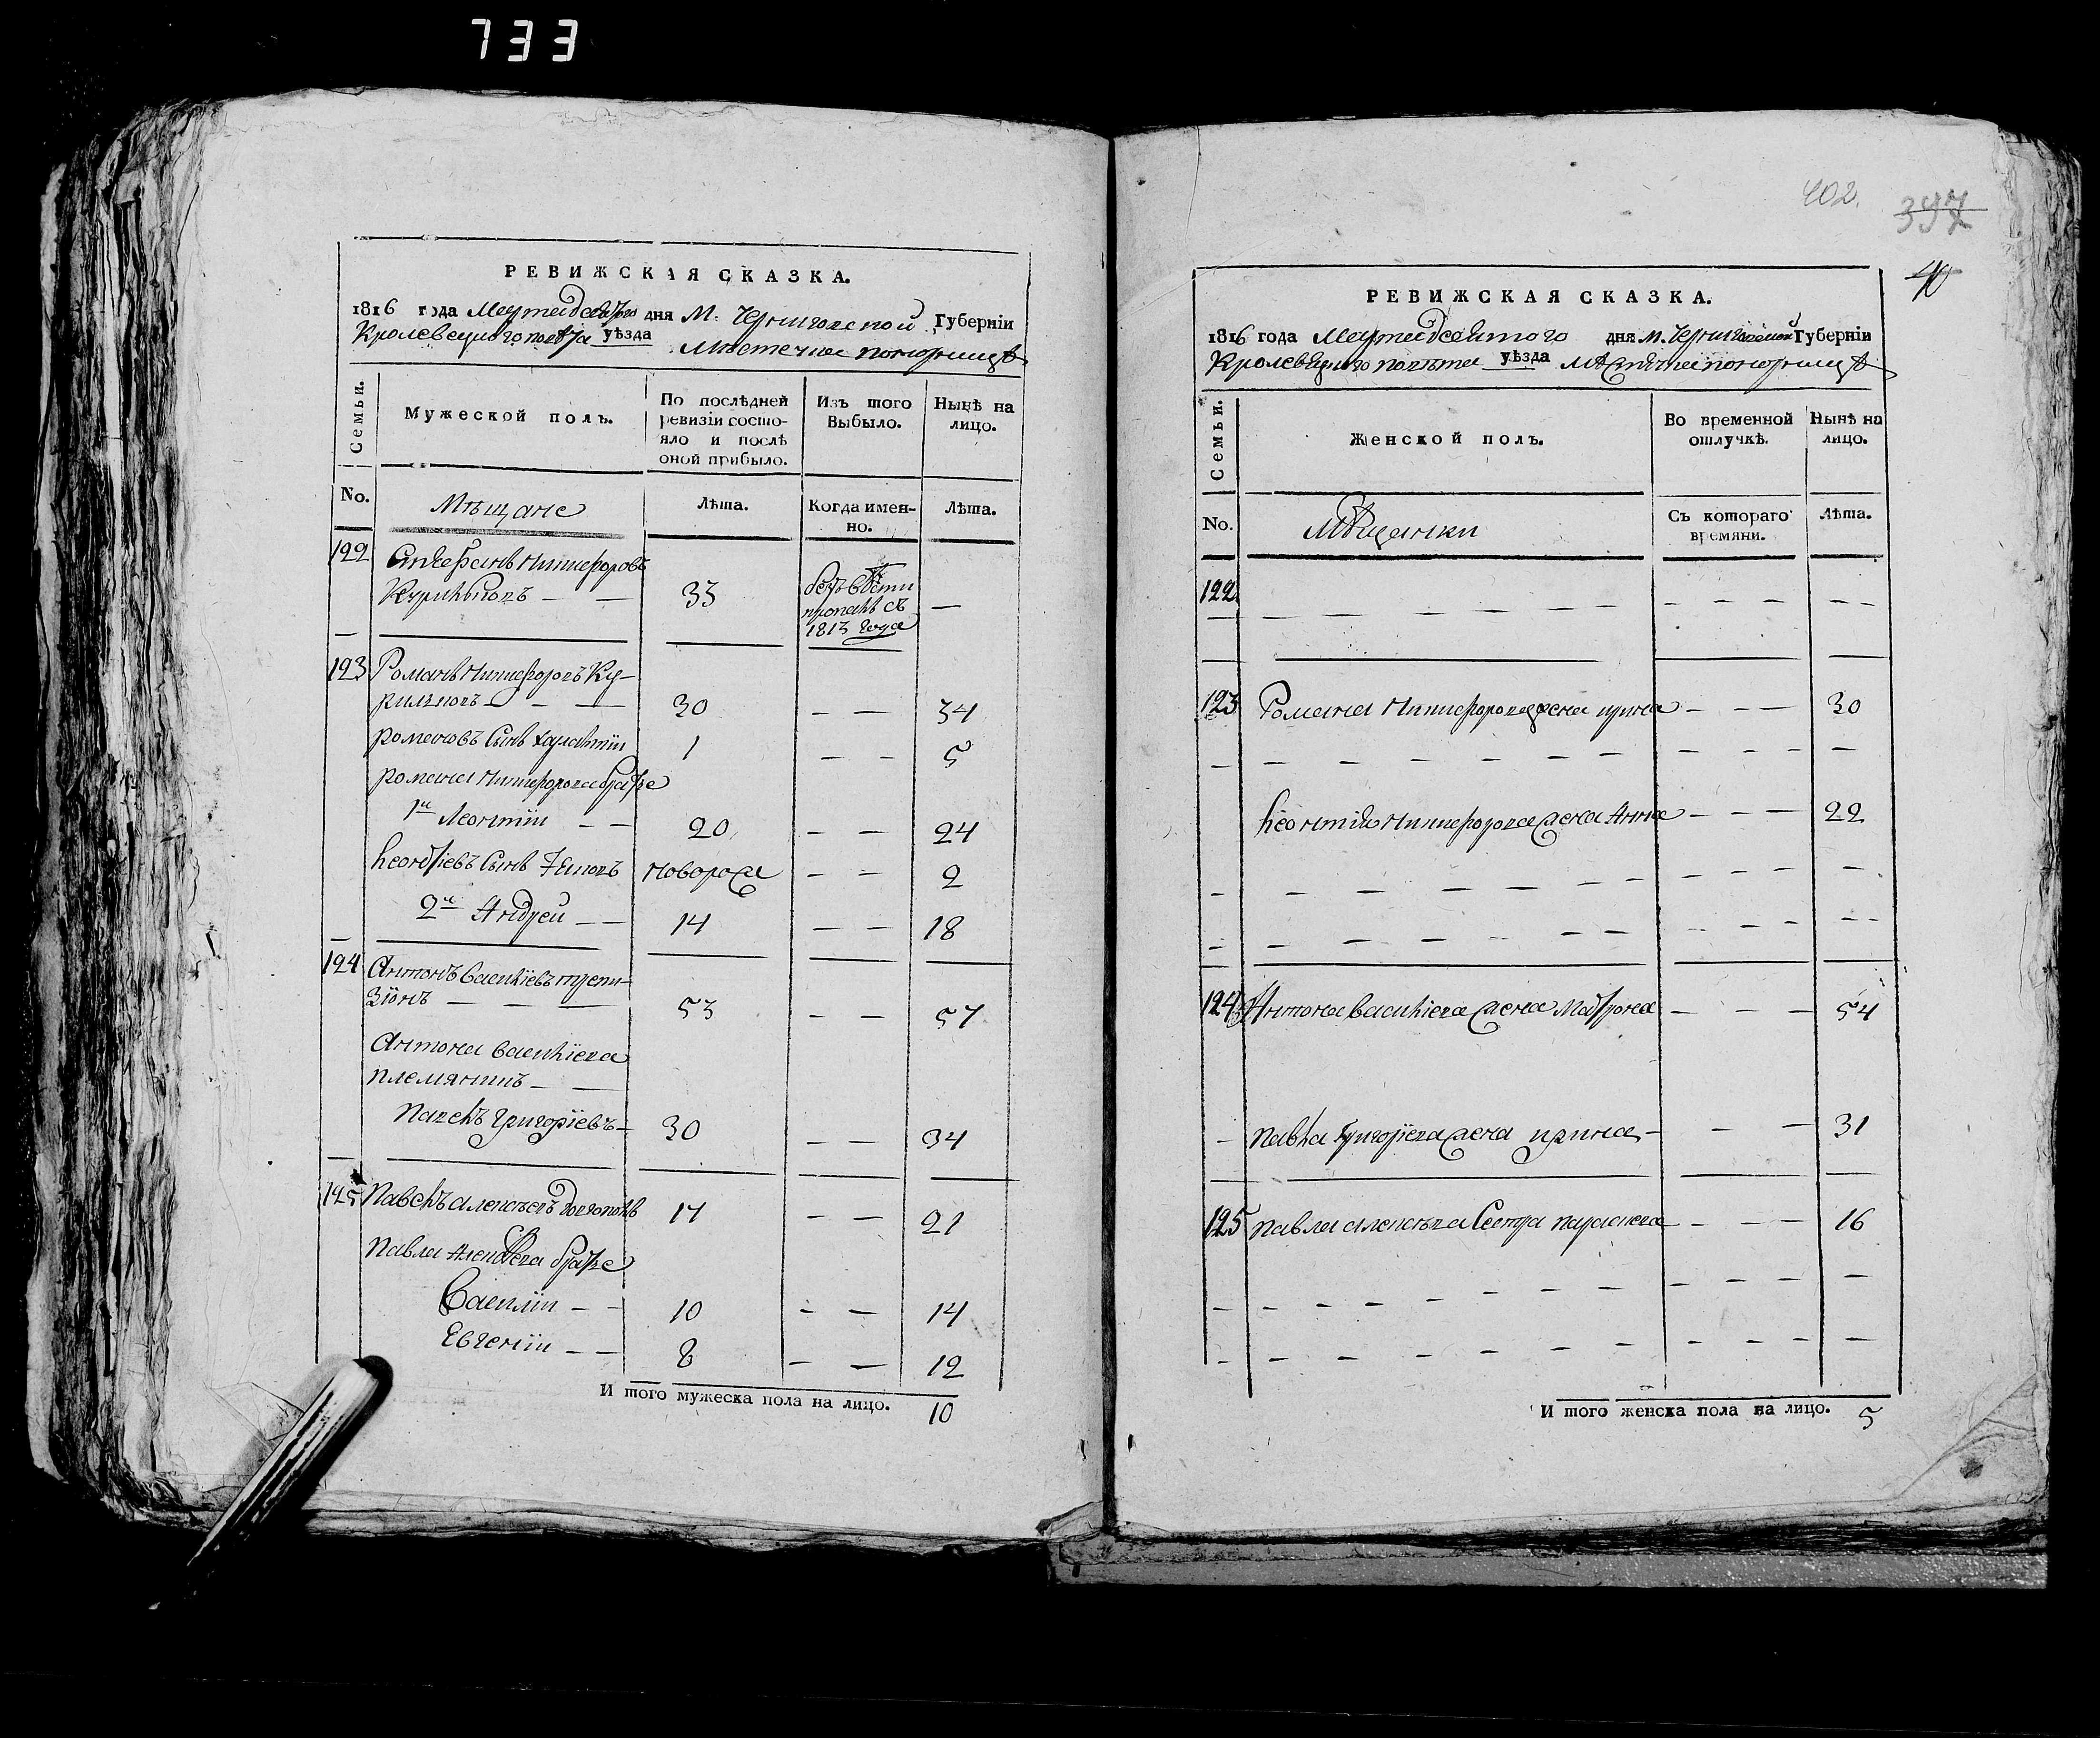 733
РЕВИЖСКАЯ СКАЗКА.
1816 года Марта десятого дня М. Черниговской Губерніи
Кролевецкого повѣта уѣзда Мѣстечка Понорницѣ
Семьи.
Мужеской полъ.
По послѣдней ревизіи состояло и послѣ оной прибыло.
Изъ того Выбыло.
Нынѣ на лицо.
No.
Мѣщане
Лѣта.
Когда именно.
Лѣта.
122 Никифоровъ
33 безъ вѣсти
пропалъ съ —
1813 года
123 Романъ Никифоровъ Ку-
риленокъ — — 30 — — 34
Романовъ сынъ 1 — — 5
Романа Никифорова братья
1й Леонтіи — — 20 — — 24
Леонтіевъ сынъ новорож 2
2й Андреи — — 14 — — 18
124 Антонъ Василіевъ
53 — — 57
Антона Василіева
племянникъ — —
Павелъ Григоріевъ — 30 — — 34
125 Павелъ Алексѣевъ 17 — — 21
Павла Алексѣева братья
Василіи — — 10 — — 14
Евгеніи — — 8 — — 12
И того мужеска пола на лицо. 10
402.
397
40
РЕВИЖСКАЯ СКАЗКА.
1816 года Марта десятого дня М. Черниговской Губерніи
Кролевецкого повѣта уѣзда Мѣстечка Понорницѣ
Семьи.
Женской полъ.
Во временной отлучкѣ.
Нынѣ на лицо.
No.
Мѣщанки
Съ котораго времяни.
Лѣта.
122
123 Романа Никифорова жена Ирина — — — 30
Леонтія Никифорова жена Анна — — — 22
124 Антона Василіева жена Матрона — — — 54
Павла Григоріева жена Ирина — — — 31
125 Павла Алексѣева сестра — — — 16
И того женска пола на лицо. 5